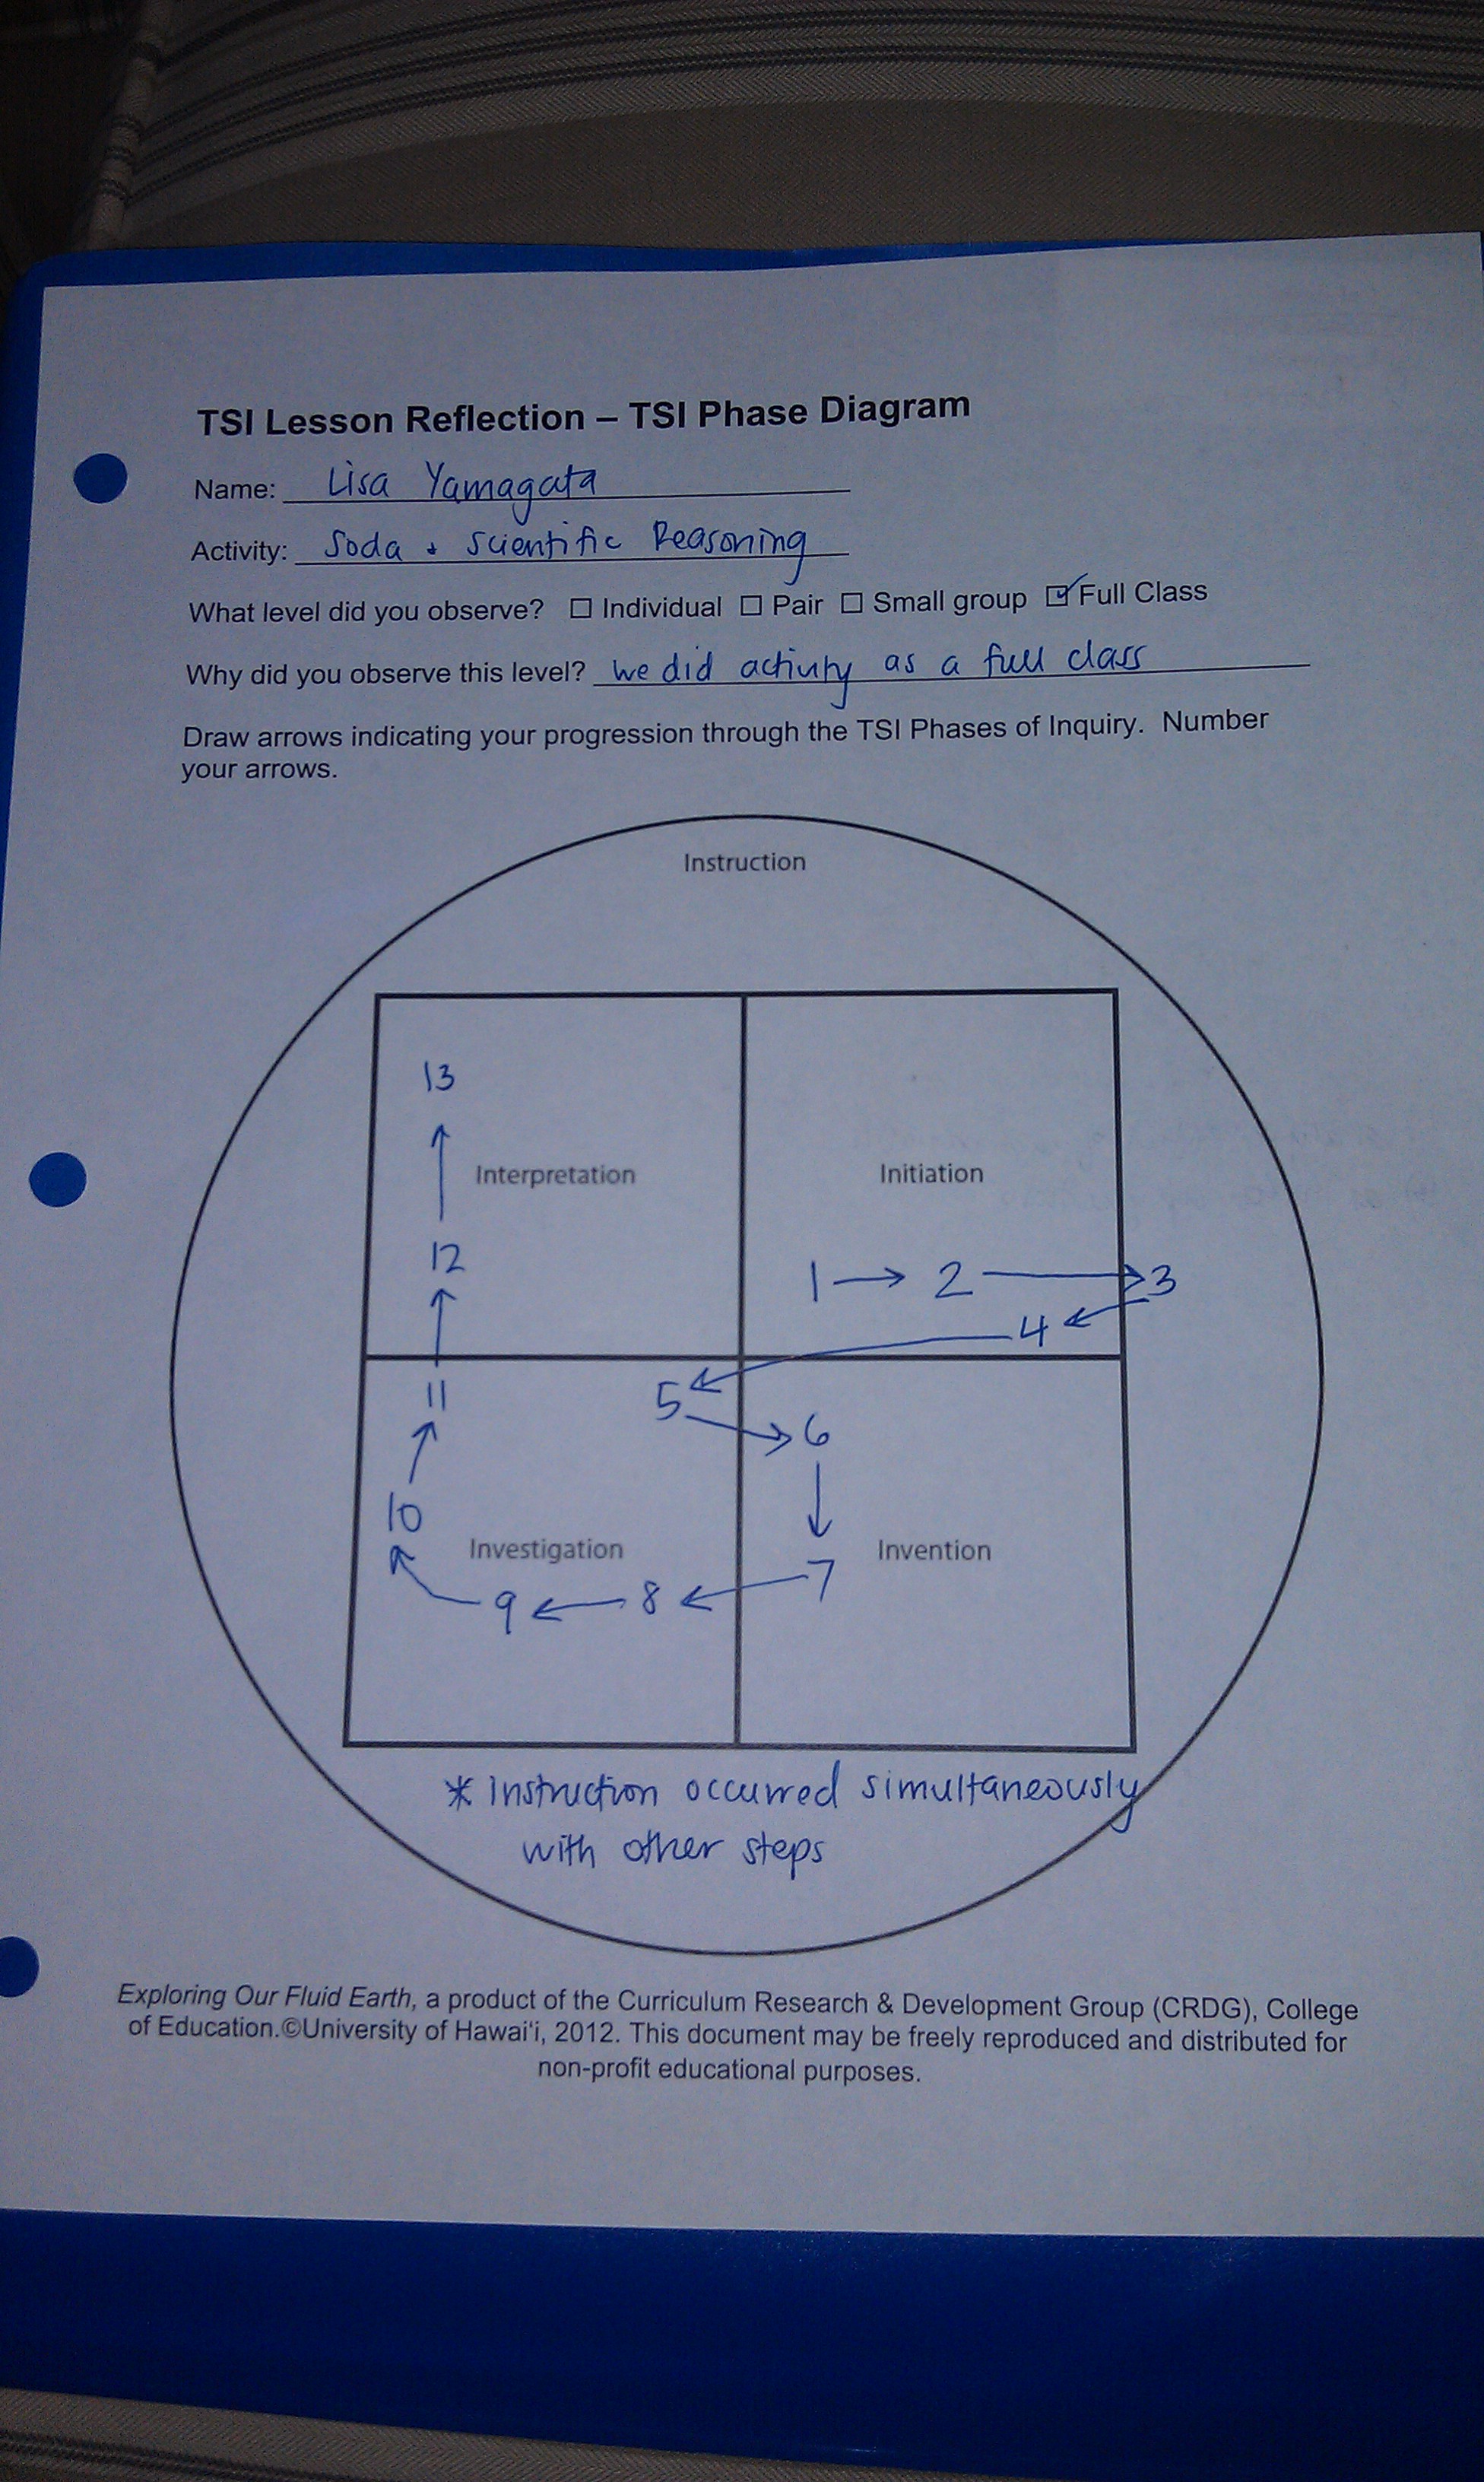 TSI Lesson Reflection – TSI Phase Diagram
Name: Lisa Yamagata
Activity: Soda + Scientific Reasoning
What level did you observe? ☐ Individual ☐ Pair ☐ Small group ☑ Full Class
Why did you observe this level? we did activity as a full class
Draw arrows indicating your progression through the TSI Phases of Inquiry. Number
your arrows.
Instruction
13
Interpretation Initiation
12 1 → 2 → 3
4
11 5 6
10
Investigation Invention
9 ← 8 ← 7
* Instruction occurred simultaneously
with other steps
Exploring Our Fluid Earth, a product of the Curriculum Research & Development Group (CRDG), College
of Education.©University of Hawaiʻi, 2012. This document may be freely reproduced and distributed for
non-profit educational purposes.